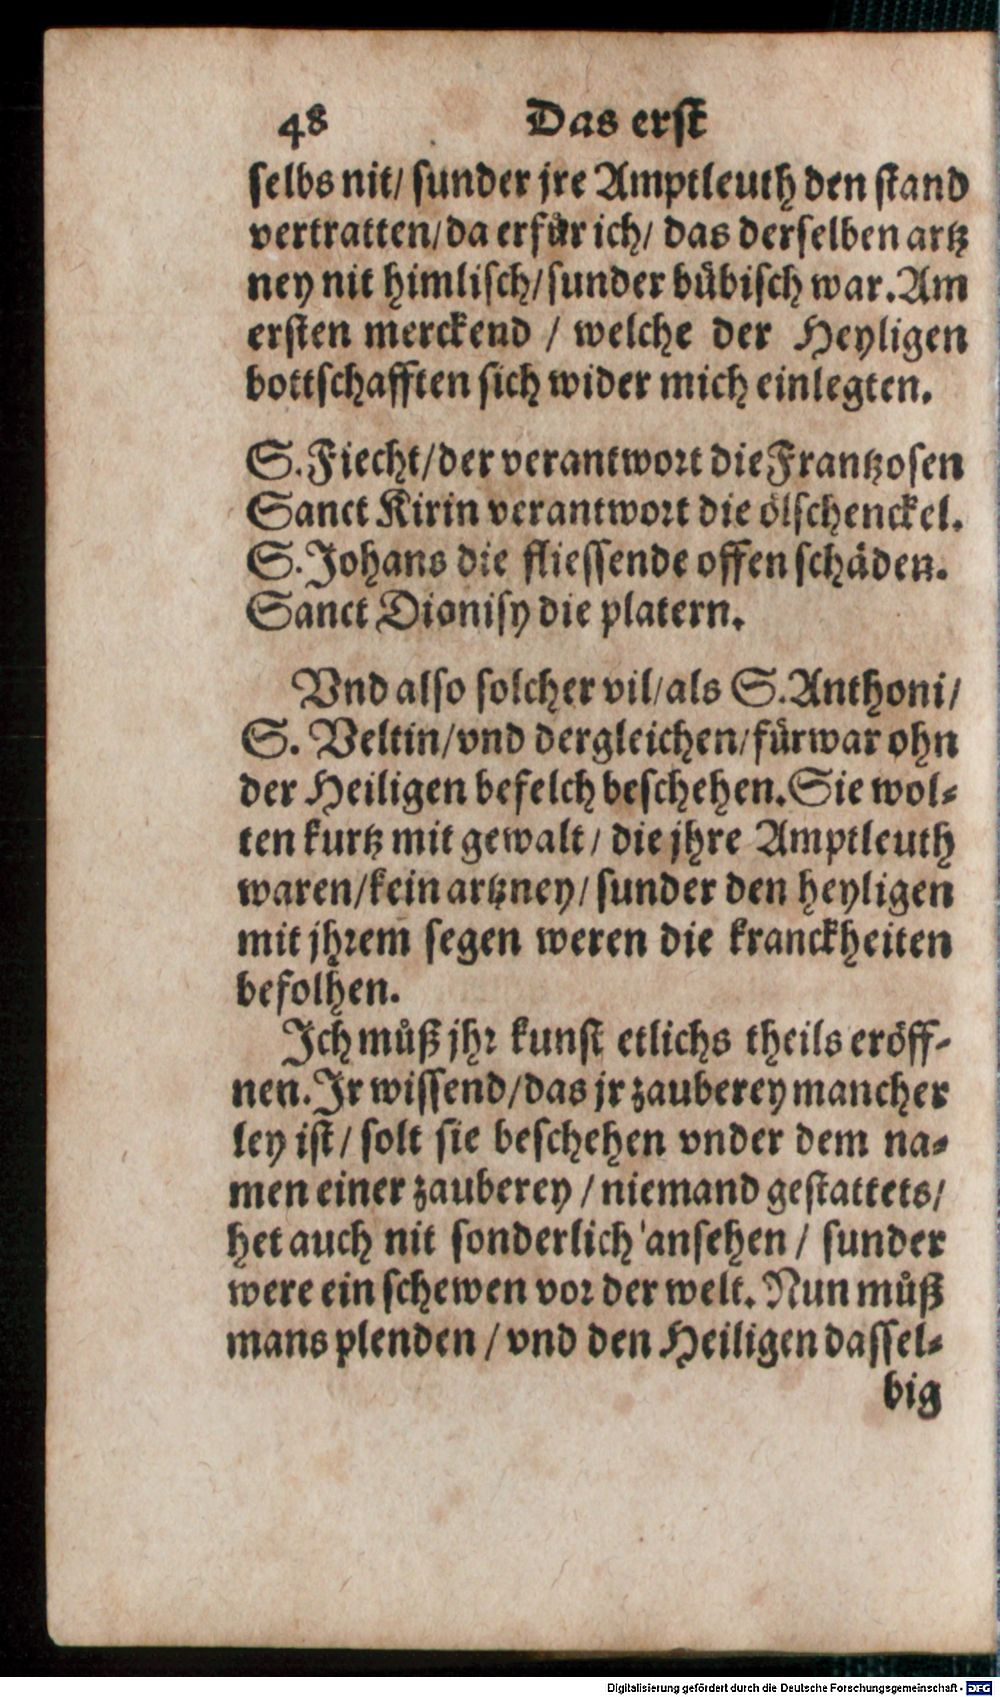 48 Das erst
selbs nit/ sunder jre Amptleuth den stand
vertratten/ da erfůr ich/ das derselben artz
ney nit himlisch/ sunder bübisch war. Am
ersten merckend / welche der Heyligen
bottschafften sich wider mich einlegten.
S. Fiecht/ der verantwort die Frantzosen
Sanct Kirin verantwort die ölschenckel.
S. Johans die fliessende offen schäden.
Sanct Dionisy die platern.
Vnd also solcher vil/ als S. Anthoni/
S. Veltin/ vnd dergleichen/ fürwar ohn
der Heiligen befelch beschehen. Sie wol-
ten kurtz mit gewalt / die jhre Amptleuth
waren/ kein artzney/ sunder den heyligen
mit jhrem segen weren die kranckheiten
befolhen.
Ich můß jhr kunst etlichs theils eröff-
nen. Ir wissend/ das jr zauberey mancher
ley ist/ solt sie beschehen vnder dem na-
men einer zauberey / niemand gestattets/
het auch nit sonderlich ansehen / sunder
were ein schewen vor der welt. Nun můß
mans plenden / vnd den Heiligen dassel-
big
Digitalisierung gefördert durch die Deutsche Forschungsgemeinschaft - DFG